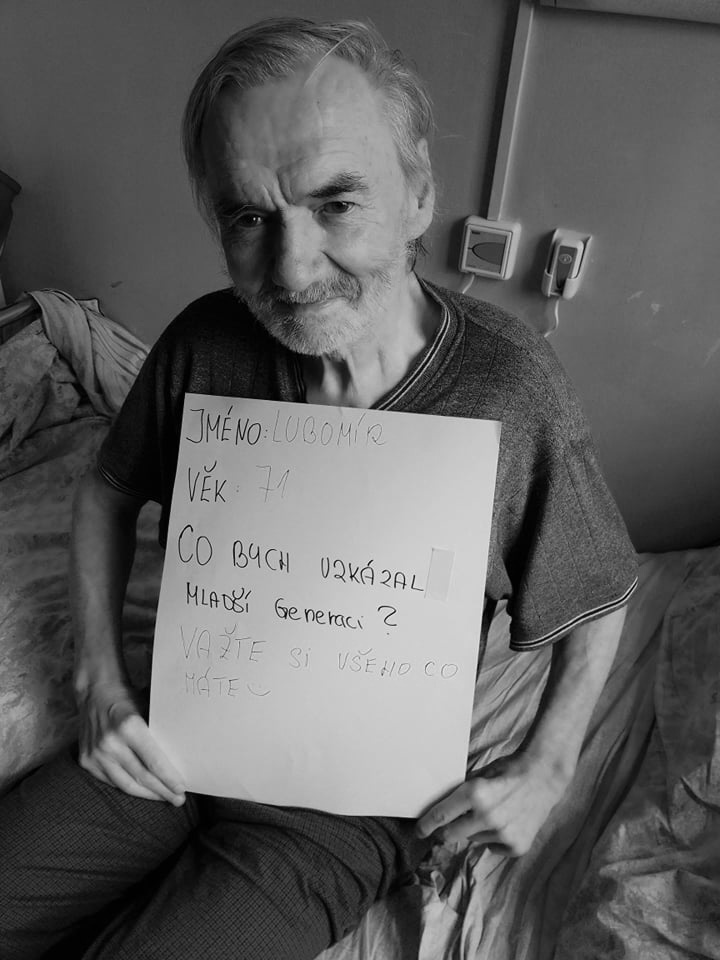 JMÉNO: LUBOMÍR
VĚK: 71
CO BYCH VZKÁZAL
MLADŠÍ Generaci?
VAŽTE SI VŠEHO CO
MÁTE